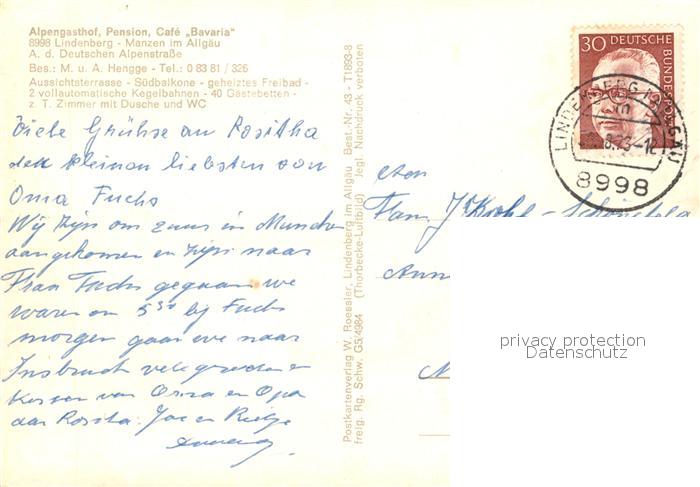 Alpengasthof, Pension, Café „Bavaria"
8998 Lindenberg - Manzen im Allgäu
A. d. Deutschen Alpenstraße
Bes.: M. u. A. Hengge - Tel.: 0 83 81 / 326
Aussichtsterrasse - Südbalkone - geheiztes Freibad -
2 vollautomatische Kegelbahnen - 40 Gästebetten -
z. T. Zimmer mit Dusche und WC
Viele Grühse an Rositha
den kleinen liebsten von
Oma Fuchs
Wij zijn om uur in Munchen
aangekomen en zijn naar
Frau Fuchs gegaan we
waren om 5 30 bij Fuchs
morgen gaan we naar
Insbruck vele groeten en
kussen van Oma en Opa
aan Rosita. Jac en
Postkartenverlag W. Roessler, Lindenberg im Allgäu Best.-Nr. 43 - T1893-8
freig. Rg. Schw. G5/4984 (Thorbecke-Luftbild) jegl. Nachdruck verboten
30 DEUTSCHE BUNDESPOST
LINDENBERG
73-12
8998
Fam.
privacy protection
Datenschutz